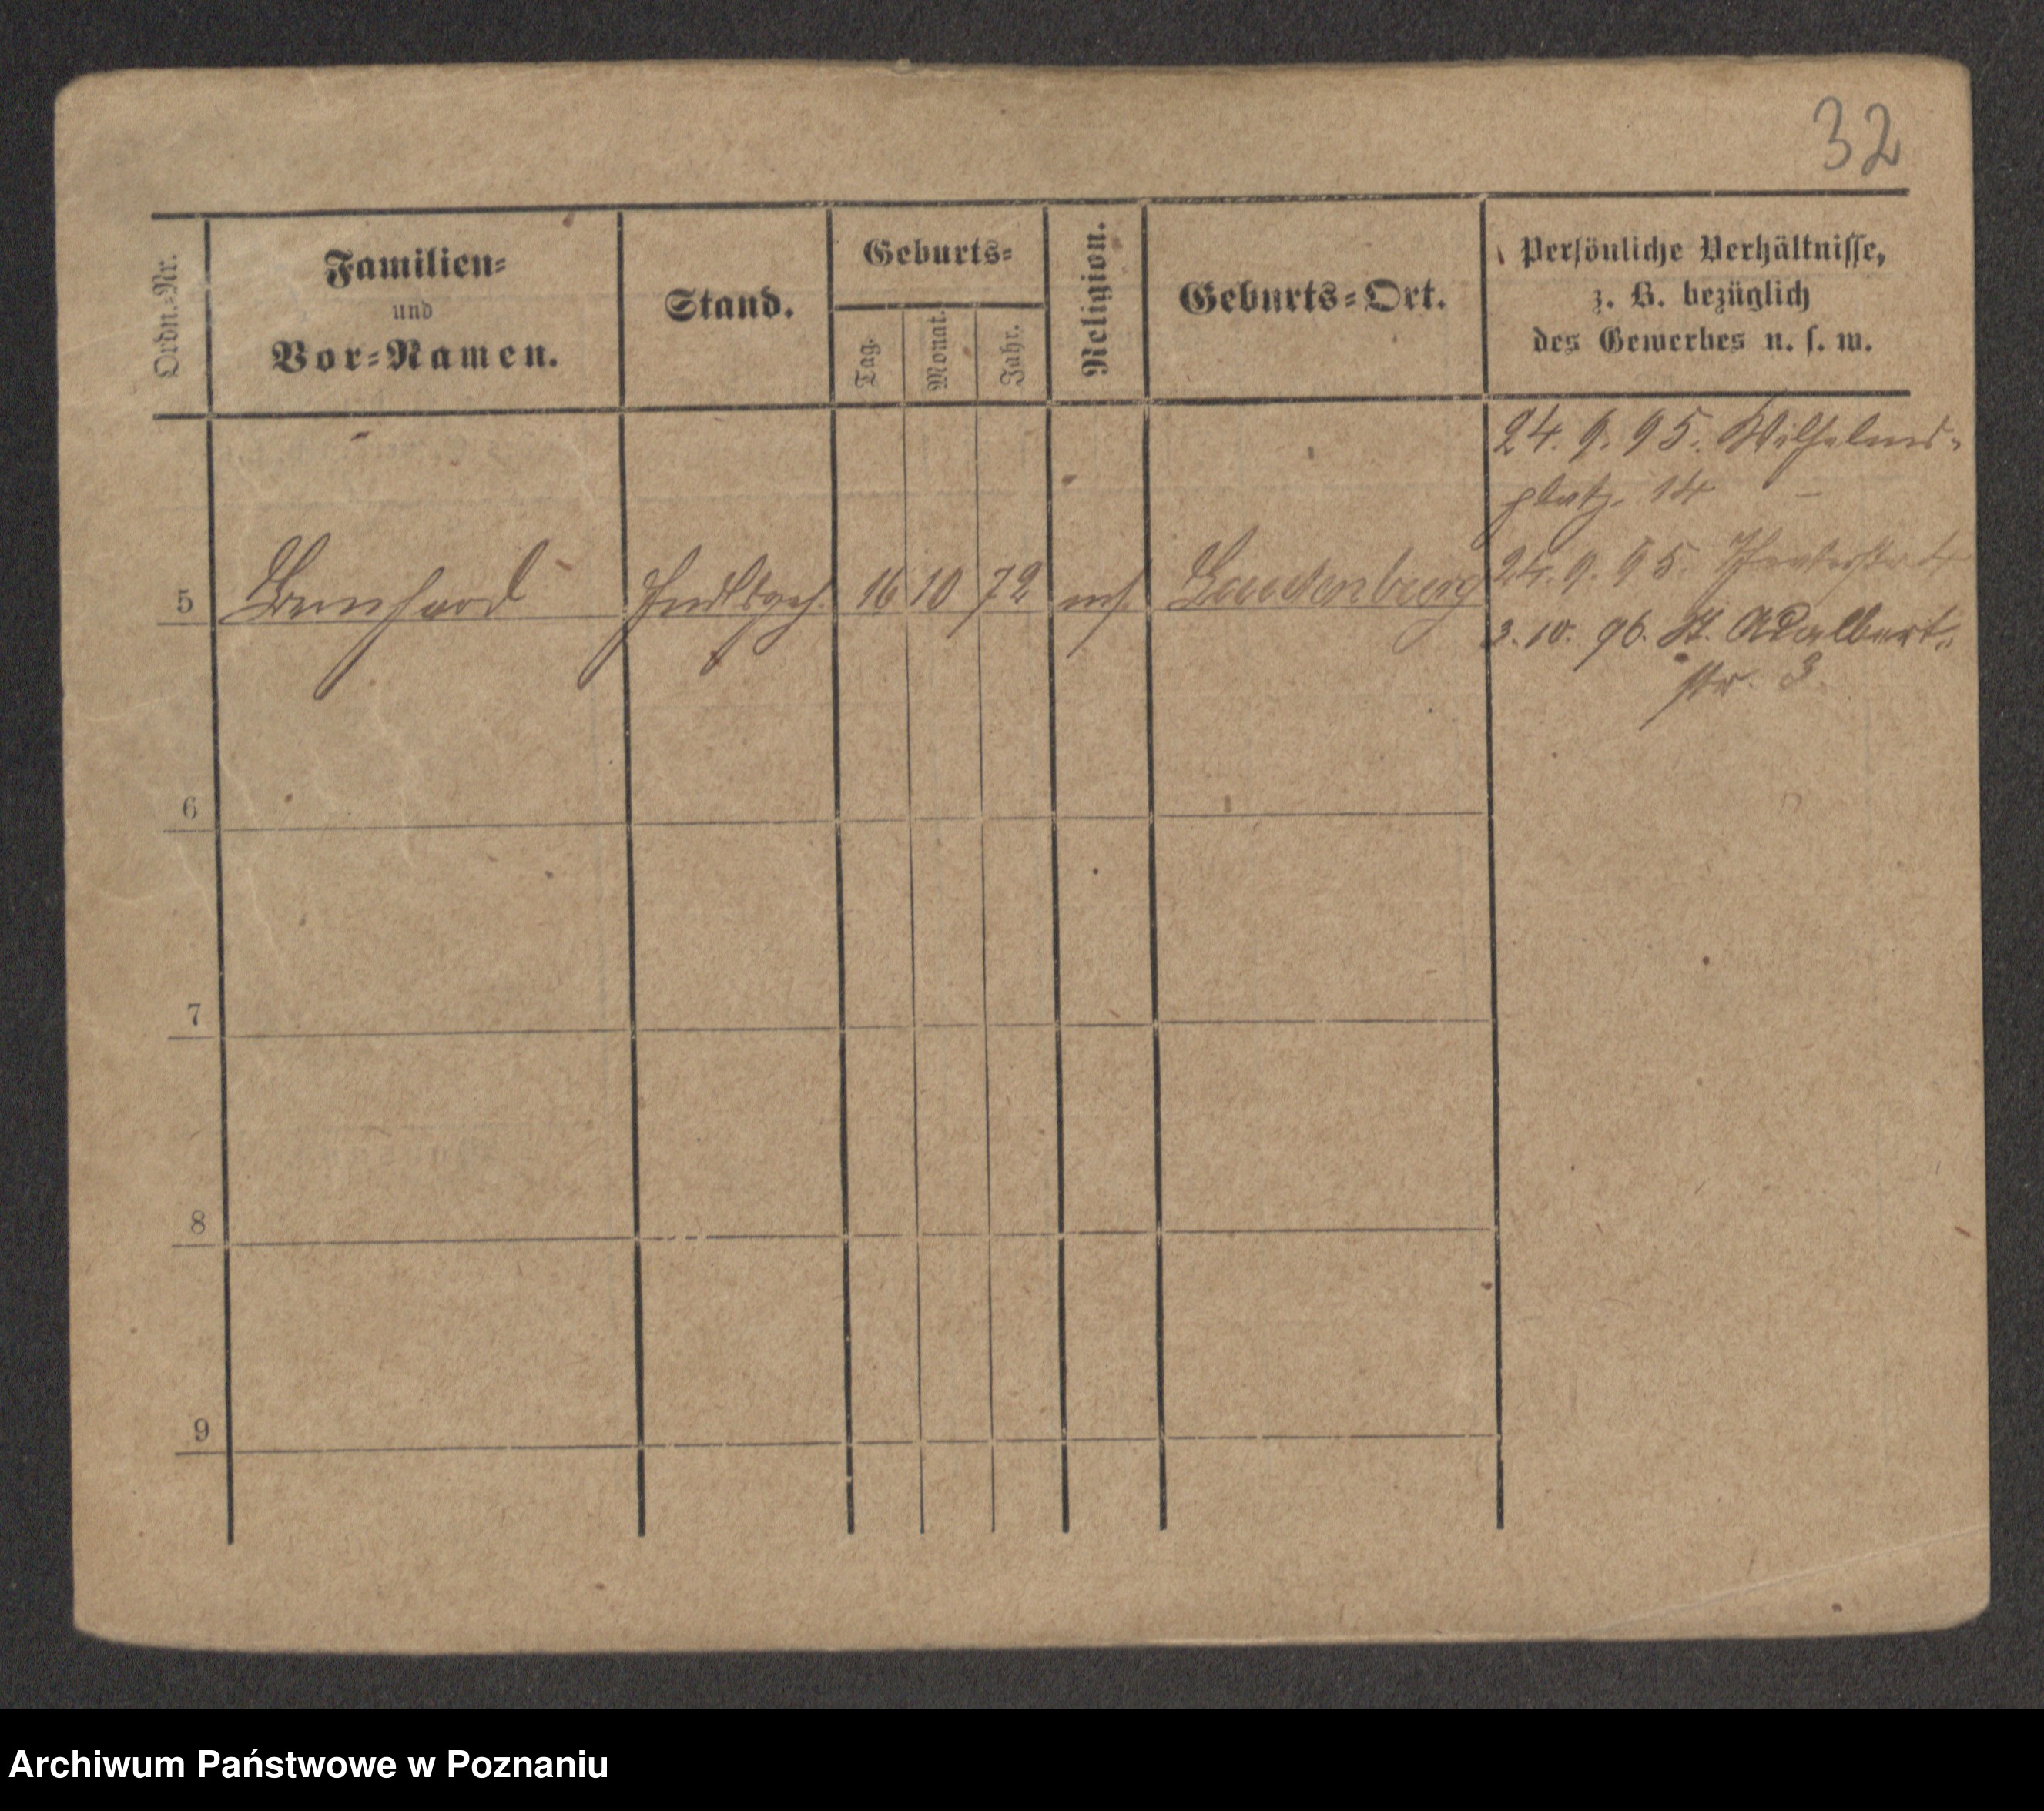 32
Ordn.-Nr.
Familien-
und
Vor-Namen.
Stand.
Geburts-
Tag.
Monat.
Jahr.
Religion.
Geburts-Ort.
Persönliche Verhältnisse,
z. B. bezüglich
des Gewerbes u. s. w.
24. 9. 95. Wilhelms-
platz 14
5 Bernhard 16 10 72 Lautenburg
24. 9. 95. Theaterstr 4
3. 10. 96. St. Adalbert-
str. 3.
6
7
8
9
Archiwum Państwowe w Poznaniu